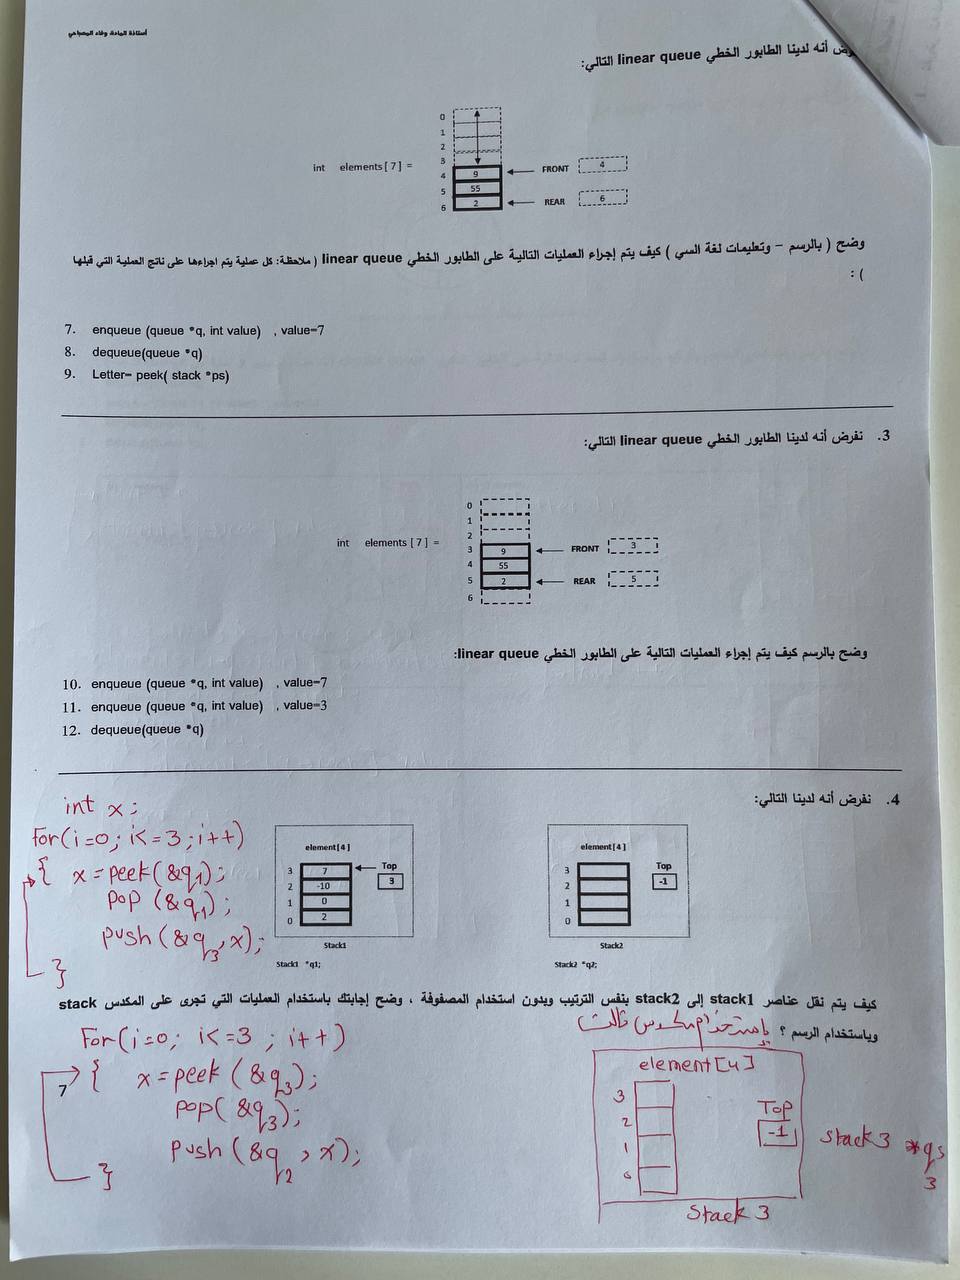 أستاذة المادة: وفاء المصباحي
رض أنه لدينا الطابور الخطي linear queue التالي:
0
1
2
3
int elements [ 7 ] = 4 9 FRONT 4
5 55
6 2 REAR 6
وضح ( بالرسم – وتعليمات لغة السي ) كيف يتم إجراء العمليات التالية على الطابور الخطي linear queue ( ملاحظة: كل عملية يتم اجراءها على ناتج العملية التي قبلها
) :
7. enqueue (queue *q, int value) , value=7
8. dequeue(queue *q)
9. Letter= peek( stack *ps)
3. نفرض أنه لدينا الطابور الخطي linear queue التالي:
0
1
2
int elements [ 7 ] = 3 9 FRONT 3
4 55
5 2 REAR 5
6
وضح بالرسم كيف يتم إجراء العمليات التالية على الطابور الخطي linear queue:
10. enqueue (queue *q, int value) , value=7
11. enqueue (queue *q, int value) , value=3
12. dequeue(queue *q)
4. نفرض أنه لدينا التالي:
int x;
For(i=0; i<=3; i++)
{ x=peek(&q1);
pop (&q1);
push (&q3,x);
}
element[4]
3 7 Top
2 -10 3
1 0
0 2
Stack1
Stack1 *q1;
element[4]
3 Top
2 -1
1
0
Stack2
Stack2 *q2;
كيف يتم نقل عناصر stack1 إلى stack2 بنفس الترتيب وبدون استخدام المصفوفة ، وضح إجابتك باستخدام العمليات التي تجرى على المكدس stack
وباستخدام الرسم ؟ بإستخدام مكدس ثالث
For(i=0; i<=3 ; i++)
{ x=peek (&q3);
pop(&q3);
push (&q2 , x);
}
7
element[4]
3
2 Top
1 -1
0
Stack 3
stack3 *qs
3